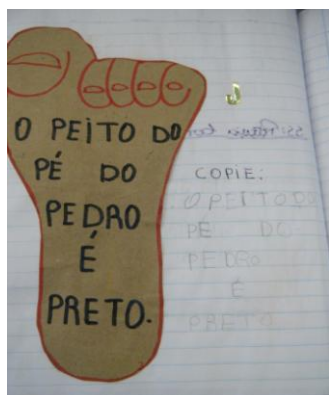 O PEITO DO
PÉ DO
PEDRO
É
PRETO.
COPIE:
O PEITO DO
PÉ DO
PEDRO
É
PRETO